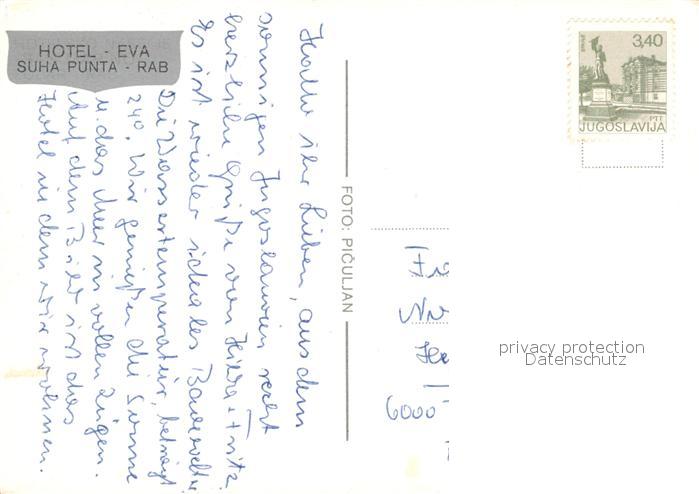 HOTEL - EVA
SUHA PUNTA - RAB
Hallo ihr Lieben, aus dem
sonnigen Jugoslawien recht
herzliche Grüße von Hilda + Fritz.
Es ist wieder ideales Badewetter.
Die Wassertemperatur, beträgt
24°. Wir genießen die Sonne
u. das Meer in vollen Zügen.
Auf dem Bild ist das
Hotel in dem wir wohnen.
FOTO: PIČULJAN
3,40
PTT
JUGOSLAVIJA
6000
privacy protection
Datenschutz